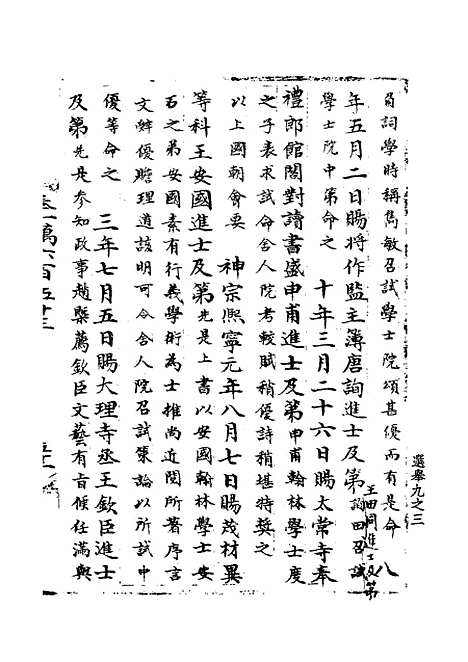 選舉九之三
有詞學時稱雋敏召試學士院頌甚優而有是命 八
年五月二日賜將作監主簿唐詢進士及第詢召試
學士院中第命之 十年三月二十六日賜太常寺奉
禮郎館閣對讀書盛申甫進士及第申甫翰林學士度
之子表求試命舍人院考校賦稍優詩稍堪特獎之
以上國朝會要 神宗熙寧元年八月七日賜茂材異
等科王安國進士及第先是上書以安國翰林學士安
石之弟安國素有行義學術為士推尚近閱所著序言
文辭優贍理道該明可令舍人院召試策論以所試中
優等命之 三年七月五日賜大理寺丞王欽臣進士
及第先是參知政事趙槩薦欽臣文藝有旨候任滿與
卷一萬六百五十三